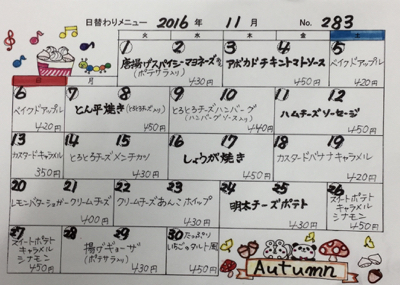 日替わりメニュー 2016年 11月 No. 283
火 水 木 金 土
1 2 3 4 5
唐揚げスパイシーマヨネーズ
アボカドチキントマトソース
ベイクドアップル
(ポテサラ入り)
430円 450円 420円
日 月
6 7 8 9 10 11 12
ベイクドアップル
とん平焼き(とろとろチーズ入り)
とろとろチーズハンバーグ
(ハンバーグソース入り)
ハムチーズソーセージ
420円 450円 440円 450円
13 14 15 16 17 18 19
カスタードキャラメル
とろとろチーズメンチカツ
しょうが焼き
カスタードバナナキャラメル
350円 430円 450円 420円
20 21 22 23 24 25 26
レモンバターシュガー
クリームチーズ
クリームチーズあんこホイップ
明太チーズポテト
スイートポテト
キャラメル
シナモン
400円 430円 450円
27 28 29 30
スイートポテト
キャラメル
シナモン
450円
揚げギョーザ
(ポテサラ入り)
430円
たっぷり
いちごのタルト風
450円
Autumn